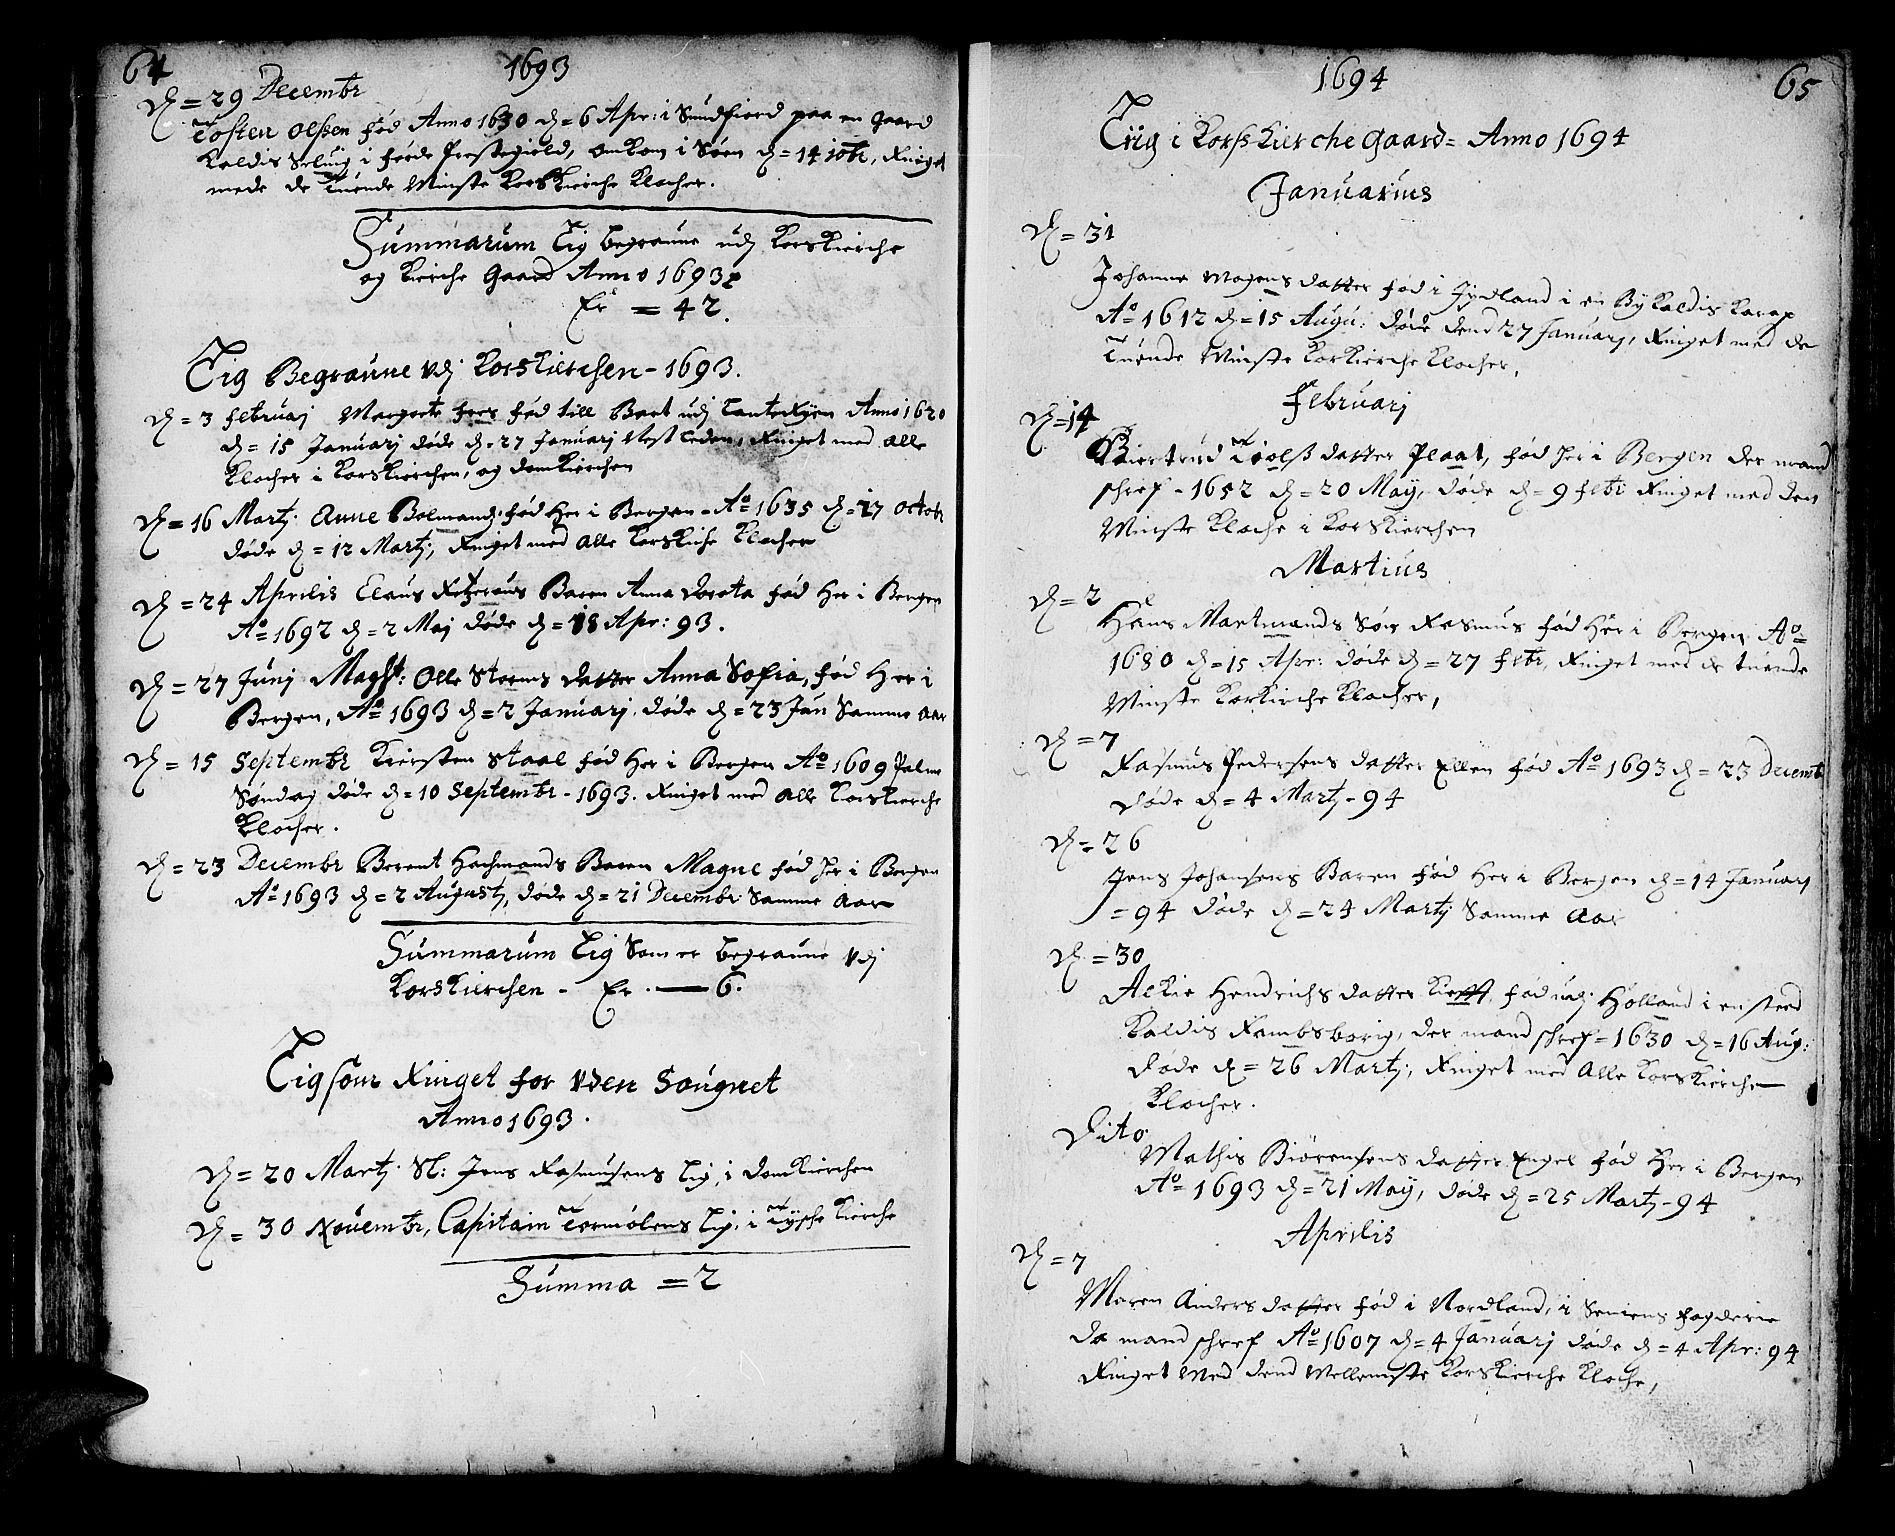 64
1693
d = 29 Decembr
Tosten Olssen fød Anno 1630 d = 6 Apr: i Sundfiord paa en gaard
kaldis i førde Prestegield, omkom i Søen d = 14 10br, Ringet
mede de Tuende Minste Korskierche Klocher.
Summarum Lig begraune udj Korskierche
og Kierche Gaard Anno 1693
Er = 42.
Lig Begraune vdj Korskierchen - 1693.
d = 3 februarj Margrete fød till Bart udj Anno 1620
d = 15 Januarj døde d = 27 Januarj Nest leden, Ringet med alle
Klocher i Korskierchen, og domkierchen
d = 16 Martj. Anne Bolmand; fød Her i Bergen - Ao 1635 d = 17 octobr
døde d = 12 Martj, Ringet med alle Korskirche Klocher
d = 24 Aprilis Claus Baren Anna Dorota fød Her i Bergen
Ao = 1692 d = 2 Maj døde d = 18 Apr: 93.
d = 27 Junj Magst: Olle Storms datter Anna Sofia, fød Her i
Bergen, Ao 1693 d = 2 Januarj. døde d = 23 Jun Samme Aar
d = 15 Septembr Kiersten Staal fød Her i Bergen Ao 1609 Palme
Søndag døde d = 10 Septembr - 1693. Ringet med alle Korskierche
Klocher.
d = 23 Decembr Berent Hachmands Baren Magne fød her i Bergen
Ao 1693 d = 2 Augustj, døde d = 21 Decembr Samme Aar
Summarum Lig Som er begraune vdj
Korskierchen - Er. — 6.
Lig som Ringet for vden Sougnet
Anno 1693.
d = 20 Martj. Sl: Jens Rasmusens Lig, i domkierchen
d = 30 Nouembr, Capitain Tormølens Lig, i Tyske Kierche
Summa = 2
1694
65
Liig i Korsskierche gaard = Anno 1694
Januarius
d = 31
Johanne Mogens datter fød i Jydland i en By kaldis
Ao 1612 d = 15 Augu: døde dend 27 Januarj, Ringet med de
Tuende Minste Korskierche Klocher,
Februarj
d = 14
Giertrud datter Plaat, fød her i Bergen der mand
schref - 1652 d = 20 Maÿ, døde d = 9 febr Ringet med den
Minste Kloche i Korskierchen
Martius
d = 2
Hans Martmands Søn Rasmus fød Her i Bergen Ao
1680 d = 15 Apr: døde d = 27 febr, Ringet med de tuende
Minste Korskirche Klocher,
d = 7
Rasmus Pedersens datter Ellen fød Ao 1693 d = 23 Decembr
Døde d = 4 Martj - 94
d = 26
Jens Johansens Baren fød Her i Bergen d = 14 Januarj
= 94 døde d = 24 Martj Samme Aar
d = 30
Aekie Hendrichs datter fød udj Holland i en sted
Kaldis Rambsborig, der mand schref = 1630 d = 16 Aug:
døde d = 26 Martj, Ringet med Alle Korskierche
Klocher.
Dito
Mathis Biørensens datter Engel fød Her i Bergen
Ao 1693 d = 21 Maÿ, døde d = 25 Martj - 94
Aprilis
d = 7
Maren Anders datter fød i Nordland, i Seniens fogderie
da mand schref Ao 1607 d = 4 Januarj døde d = 4 Apr: 94
Ringet Med dend Mellemste Korskierche Kloche,